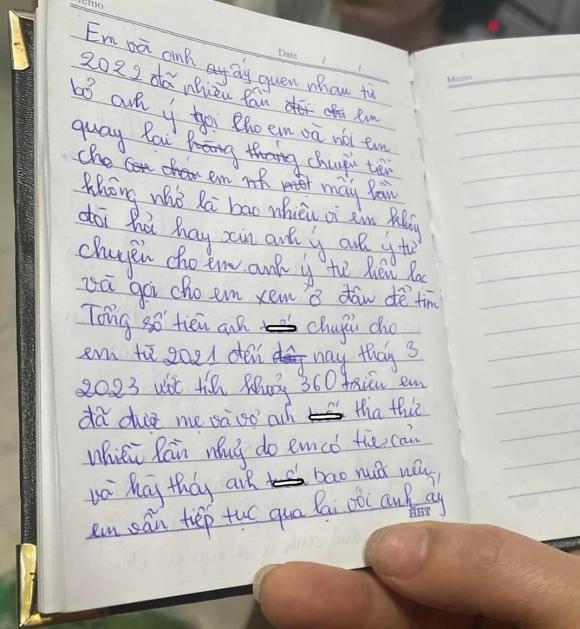 Memo
Date / /
Em và anh ay ấy quen nhau từ
2022 đã nhiều lần em
bỏ anh ý gọi cho em và nói em
quay lại hàng tháng chuyển tiền
cho em mấy lần
không nhớ là bao nhiêu vì em không
đòi hỏi hay xin anh ý anh ý tự
chuyển cho em anh ý tự liên lạc
và gọi cho em xem ở đâu để tìm
Tổng số tiền anh chuyển cho
em từ 2021 đến nay tháng 3
2023 ước tính khoảng 360 triệu em
đã được mẹ và vợ anh tha thứ
nhiều lần nhưng do em có
và hàng tháng anh bao nuôi nên
em vẫn tiếp tục qua lại với anh ấy
HHT
Memo